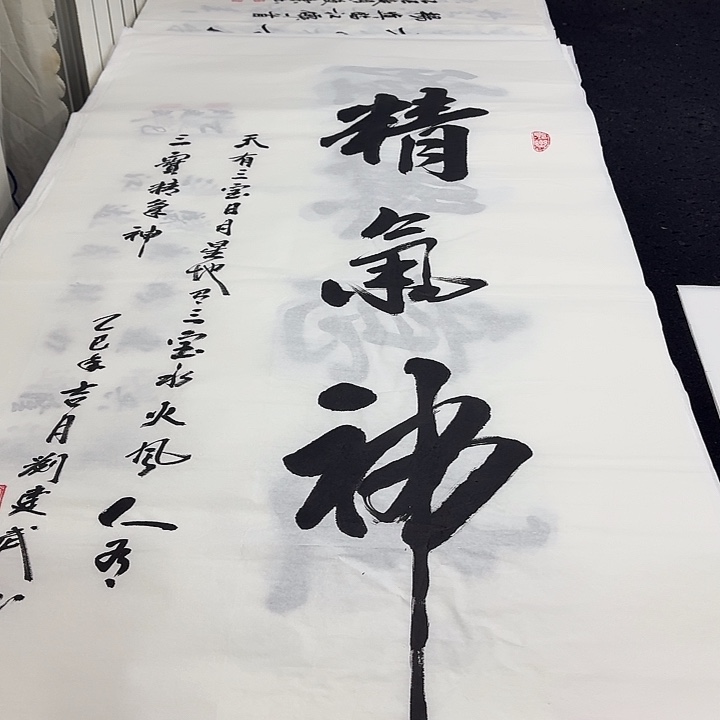 精氣神
天有三宝日月星地有三宝水火风人有
三寶精氣神
乙巳年吉月劉建武